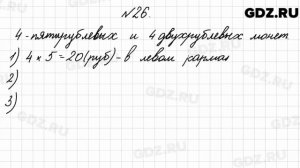 GDZ.RU
№26.
4 - пятирублевых и 4 двухрублевых монет
1) 4 × 5 = 20 (руб) - в левом карман
2)
3)
GDZ.RU